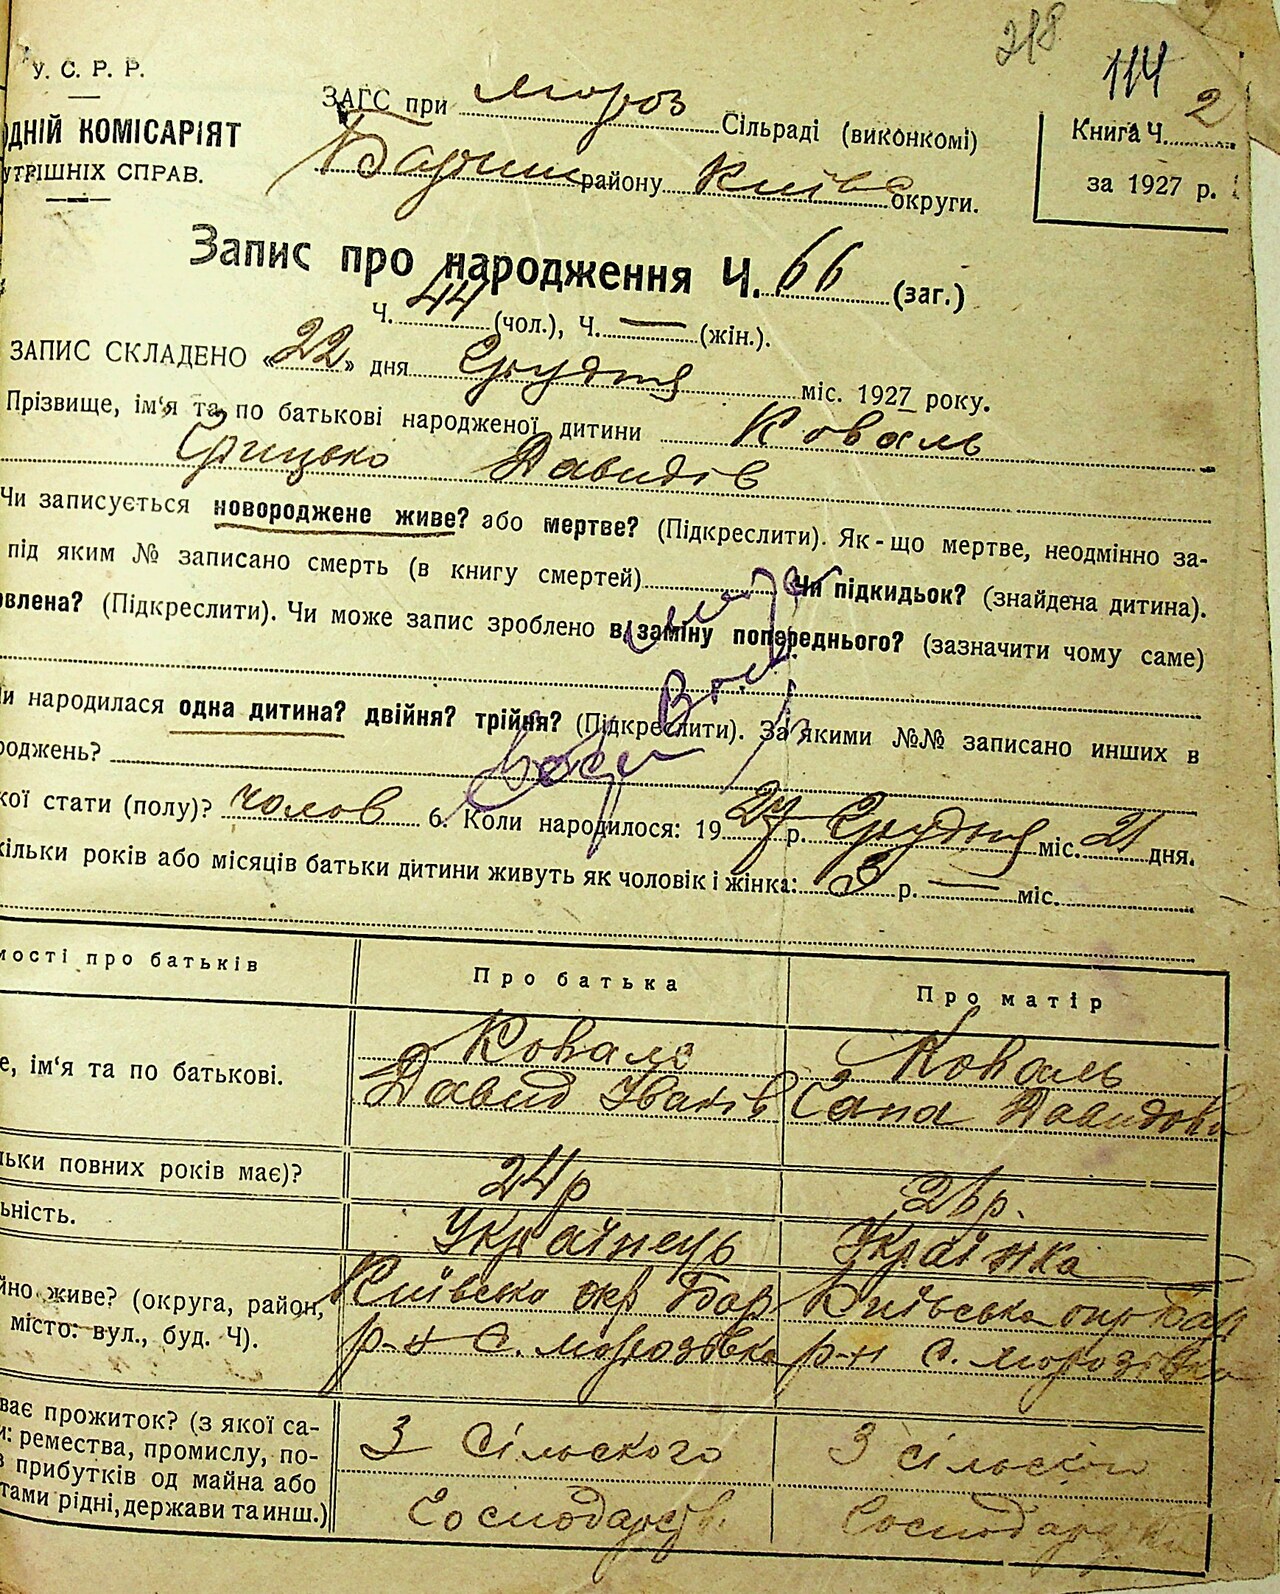 218
114
У. С. Р. Р.
ОДНІЙ КОМІСАРІЯТ
УТРІШНІХ СПРАВ.
ЗАГС при Мороз Сільраді (виконкомі)
району Київс округи.
Книга Ч. 2
за 1927 р.
Запис про народження Ч. 66 (заг.)
Ч. 44 (чол.), Ч. — (жін.).
ЗАПИС СКЛАДЕНО «22» дня Грудня міс. 1927 року.
Прізвище, ім'я та по батькові народженої дитини Коваль
Грицько Давидів
Чи записується новороджене живе? або мертве? (Підкреслити). Як-що мертве, неодмінно за-
під яким № записано смерть (в книгу смертей) Чи підкидьок? (знайдена дитина).
овлена? (Підкреслити). Чи може запис зроблено в заміну попереднього? (зазначити чому саме)
и народилася одна дитина? двійня? трійня? (Підкреслити). За якими №№ записано инших в
роджень?
кої стати (полу)? чолов 6. Коли народилося: 1927 р. Грудня міс. 21 дня.
кільки років або місяців батьки дитини живуть як чоловік і жінка: 3 р. — міс.
мості про батьків Про батька Про матір
Коваль Коваль
е, ім'я та по батькові. Давид Іванів Давидова
льки повних років має)? 24 р 26 р.
ьність. Українець Українка
йно живе? (округа, район, Київсько окр Бар Київська окр Бар
місто: вул., буд. Ч). р-н С. Морозівка р-н С. Морозівка
ває прожиток? (з якої са-
и: ремества, промислу, по- З сільського З сільськ
в прибутків од майна або
тами рідні, держави та инш.) Господарств. Господарства